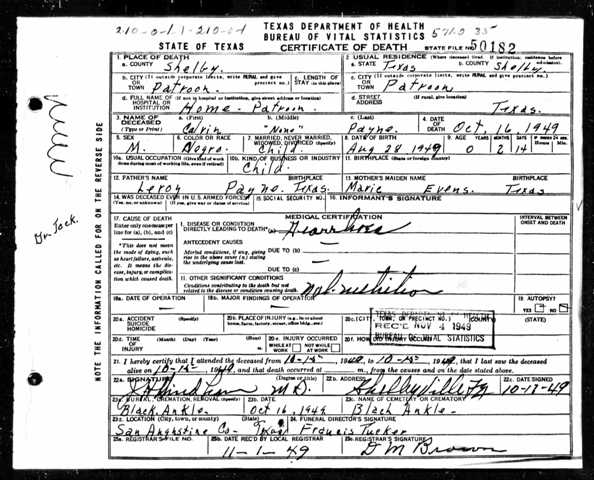 TEXAS DEPARTMENT OF HEALTH
BUREAU OF VITAL STATISTICS
STATE OF TEXAS CERTIFICATE OF DEATH STATE FILE NO. 50182
1. PLACE OF DEATH
a. COUNTY Shelby
2. USUAL RESIDENCE (Where deceased lived. If institution, residence before admission).
a. STATE Texas b. COUNTY Shelby
b. CITY (If outside corporate limits, write RURAL and give precinct no.) OR TOWN Patroon
c. LENGTH OF STAY (in this place)
c. CITY (If outside corporate limits, write RURAL and give precinct no.) OR TOWN Patroon
d. FULL NAME OF (If not in hospital or institution, give street address or location) HOSPITAL OR INSTITUTION Home - Patroon.
d. STREET ADDRESS (If rural, give location) Texas.
3. NAME OF DECEASED (Type or Print) a. (First) Calvin b. (Middle) "None" c. (Last) Payne
4. DATE OF DEATH Oct. 16, 1949
5. SEX M. 6. COLOR OR RACE Negro. 7. MARRIED, NEVER MARRIED, WIDOWED, DIVORCED (Specify) Child. 8. DATE OF BIRTH Aug 28 1949 YEARS 0 MONTHS 2 DAYS 14
10a. USUAL OCCUPATION (Give kind of work done during most of working life, even if retired)
10b. KIND OF BUSINESS OR INDUSTRY Child.
11. BIRTHPLACE (State or foreign country)
12. FATHER'S NAME BIRTHPLACE Leroy Payne. Texas.
13. MOTHER'S MAIDEN NAME BIRTHPLACE Marie Evens. Texas
14. WAS DECEASED EVER IN U.S. ARMED FORCES? (Yes, no, or unknown) (If yes, give war or dates of service)
15. SOCIAL SECURITY NO.
16. INFORMANT'S SIGNATURE
MEDICAL CERTIFICATION
INTERVAL BETWEEN ONSET AND DEATH
17. CAUSE OF DEATH
Enter only one cause per line for (a), (b), and (c)
* This does not mean the mode of dying, such as heart failure, asthenia, etc. It means the disease, injury, or complication which caused death.
I. DISEASE OR CONDITION DIRECTLY LEADING TO DEATH*(a)
ANTECEDENT CAUSES
Morbid conditions, if any, giving rise to the above cause (a) stating the underlying cause last.
DUE TO (b)
DUE TO (c)
II. OTHER SIGNIFICANT CONDITIONS
Conditions contributing to the death but not related to the disease or condition causing death.
18a. DATE OF OPERATION
18b. MAJOR FINDINGS OF OPERATION
19. AUTOPSY? YES NO
20a. ACCIDENT SUICIDE HOMICIDE (Specify)
20b. PLACE OF INJURY (e.g., in or about home, farm, factory, street, office bldg., etc.)
20c. (CITY, TOWN, OR PRECINCT NO.) (COUNTY)
REC'D NOV 4 1949
BUREAU VITAL STATISTICS
20d. TIME OF INJURY (Month) (Day) (Year) (Hour)
20e. INJURY OCCURRED WHILE AT WORK NOT WHILE AT WORK
20f. HOW DID INJURY OCCUR?
21. I hereby certify that I attended the deceased from 10-15 1949, to 10-15 1949, that I last saw the deceased
alive on 10-15 1949, and that death occurred at m., from the causes and on the date stated above.
22a. SIGNATURE (Degree or title) M.D.
22b. ADDRESS Shelbyville Tx
22c. DATE SIGNED 10-18-49
23a. BURIAL, CREMATION, REMOVAL (Specify) Black Ankle
23b. DATE Oct 16, 1949
23c. NAME OF CEMETERY OR CREMATORY Black Ankle
23d. LOCATION (City, town, or county) (State) San Augustine Co - Texas
24. FUNERAL DIRECTOR'S SIGNATURE Francis Tucker
25a. REGISTRAR'S FILE NO.
25b. DATE REC'D BY LOCAL REGISTRAR 11-1-49
25c. REGISTRAR'S SIGNATURE D M Brown
NOTE THE INFORMATION CALLED FOR ON THE REVERSE SIDE